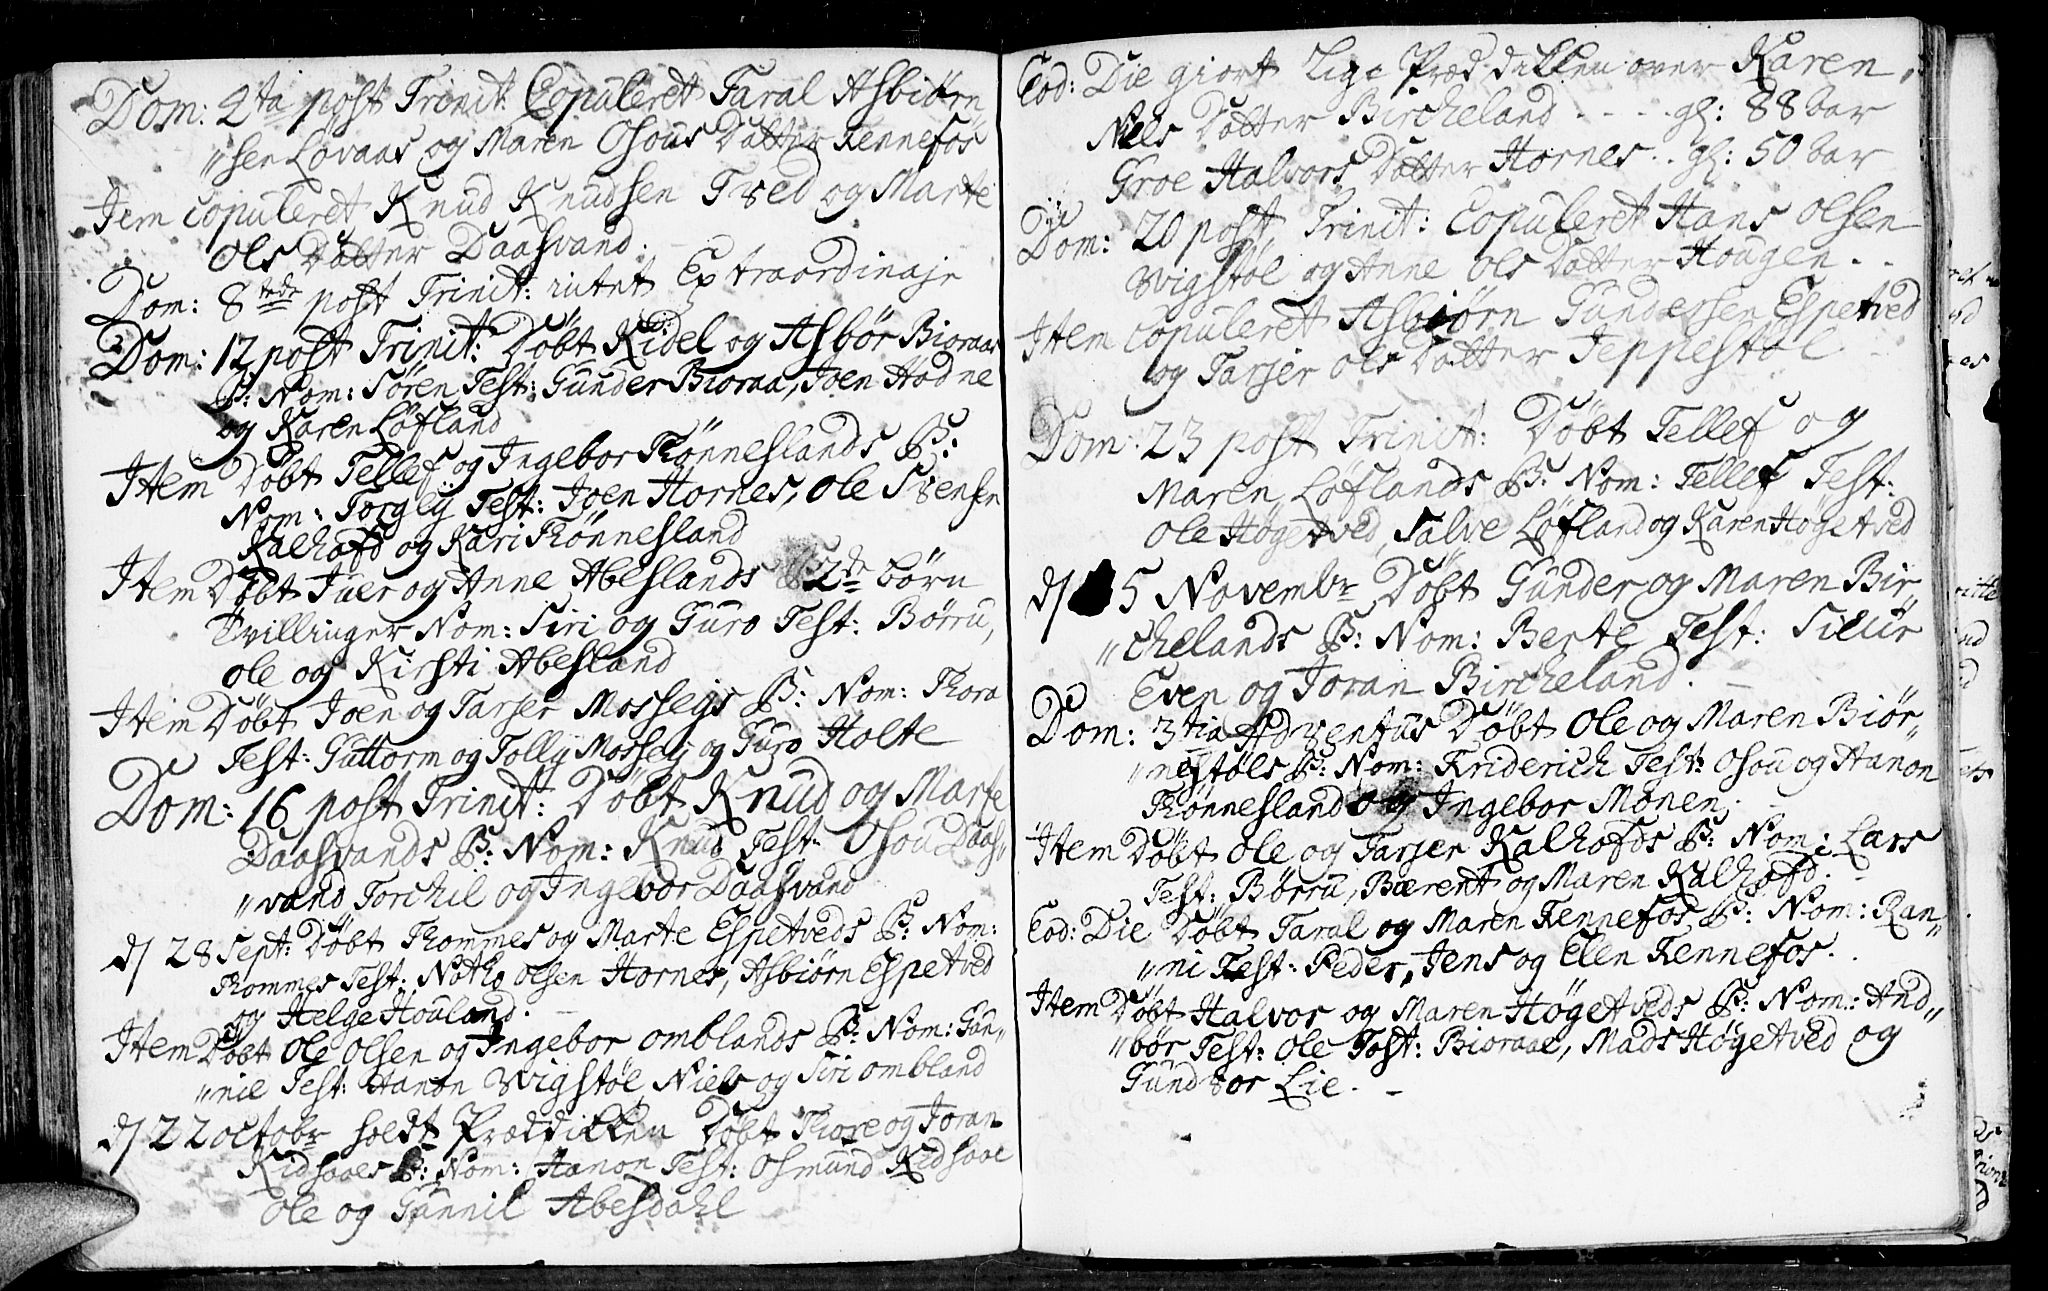 Dom: 2ta post Trinit: Copuleret Taral Asbiørn
"sen Løvaas og Maren Osous Datter Kennefos
Jtem copuleret Knud Knudsen Tved og Marte
Ols Datter Daasvand.
Dom: 8tede post Trinit: intet Extraordinaje
Dom: 12 post Trinit: Døbt Kidel og Asbør Bioraas
B: Nom: Søren Test: Gunder Bioraa, Joen Hodne
og Karen Løfland
Jtem Døbt Tellef og Ingebor Rønneslands B:
Nom: Torgly Test: Joen Hornes, Ole Svensen
Kalhofd og Kari Rønnesland
Jtem Døbt Juer og Anne Abeslands 2de børn
Tvillinger Nom: Siri og Guro Test: Børru,
Ole og Kirsti Abesland
Jtem Døbt Joen og Tarjer Mossejs B: Nom: Thora
Test: Guttorm og Tolly Mossej og Guro Holte
Dom: 16 post Trinit: Døbt Knud og Marte
Daasvands B: Nom: Knud Test: Osou Daas"
"vand Torchil og Ingebor Daasvand
d/ 28 Sept: Døbt Thommes og Marte Espetveds B: Nom:
Thommes Test: Notto Olsen Hornes, Asbiørn Espetved
og Helge Houland.
Jtem Døbt Ole Olsen og Ingebor Omblands B: Nom: Gun"
"nil Test: Hanon Wigstøl Niels og Siri Ombland
d/ 22 octobr holdt Præddikken Døbt Thore og Joran
Kidsaaes B: Nom: Hanon Test: Osmund Kidsaae
Ole og Gunnil Abesdahl
Eod: Die giort Lige Præddikken over Karen
Niels Datter Bircheland - - - - gl: 88 bar
Groe Halvors Datter Hornes.. gl: 50 bar
Dom: 20 post Trinit: Copuleret Hans Olsen
Wigstøl og Anne Ols Datter Hougen. . -
Jtem copuleret Asbiørn Gundersen Espetved
og Tarjer Ols Datter Jeppestøl
Dom: 23 post Trinit: Døbt Tellef og
Maren Løflands B: Nom: Tellef Test:
Ole Høgetved, Salve Løfland og Karen Høgetved
d/ 5 Novembr Døbt Gunder og Maren Bir"
"chelands B: Nom: Berte Test: Siur
Even og Joran Bircheland. -
Dom: 3tia Adventus Døbt Ole og Maren Biør"
"nestøls B: Nom: Friderich Test: Osou og Hanon
Rønnesland og Ingebor Monen.
Jtem Døbt Ole og Tarjer Kalhofds B: Nom: Lars
Test: Børru, Bærent og Maren Kalhofd. -
Eod: Die Døbt Taral og Maren Kennefos B: Nom: Ran"
"ni Test: Peder, Jens og Elen Kennefos. .
Jtem Døbt Halvor og Maren Høgetveds B: Nom: And"
"bør Test: Ole Tost: Bioraae, Mads Høgetved og
Gundvor Lie. -